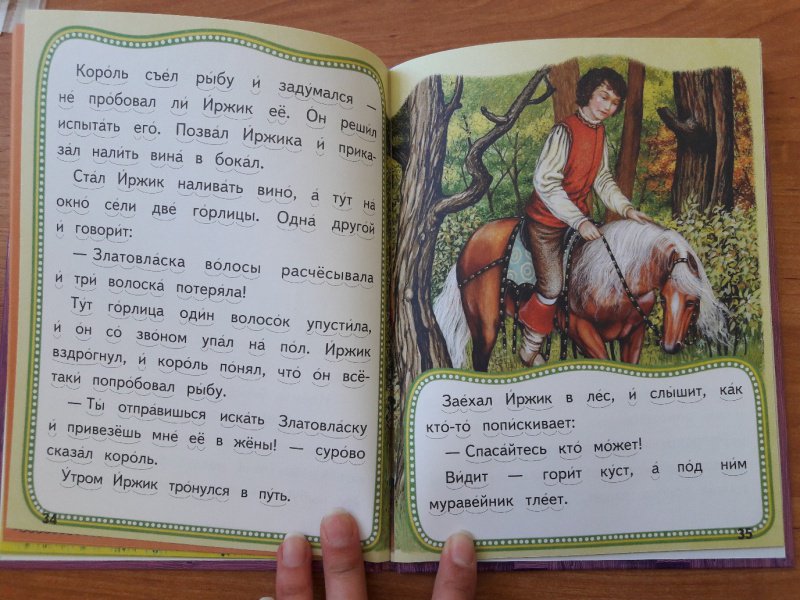 Коро́ль съе́л ры́бу и́ заду́мался —
не́ про́бовал ли́ И́ржик её. О́н реши́л
испыта́ть его́. Позва́л И́ржика и́ прика-
за́л нали́ть вина́ в бока́л.
Ста́л И́ржик налива́ть вино́, а́ ту́т на́
окно́ се́ли две́ го́рлицы. Одна́ друго́й
и́ говори́т:
— Златовла́ска во́лосы расчёсывала
и́ три́ волоска́ потеря́ла!
Ту́т го́рлица оди́н волосо́к упусти́ла,
и́ о́н со́ зво́ном упа́л на́ по́л. И́ржик
вздро́гнул, и́ коро́ль по́нял, что́ о́н всё-
таки́ попро́бовал ры́бу.
— Ты́ отпра́вишься иска́ть Златовла́ску
и́ привезёшь мне́ её в жёны! — суро́во
сказа́л коро́ль.
У́тром И́ржик тро́нулся в пу́ть.
34
Зае́хал И́ржик в ле́с, и́ слы́шит, ка́к
кто́-то́ попи́скивает:
— Спаса́йтесь кто́ мо́жет!
Ви́дит — гори́т ку́ст, а́ по́д ни́м
мураве́йник тле́ет.
35